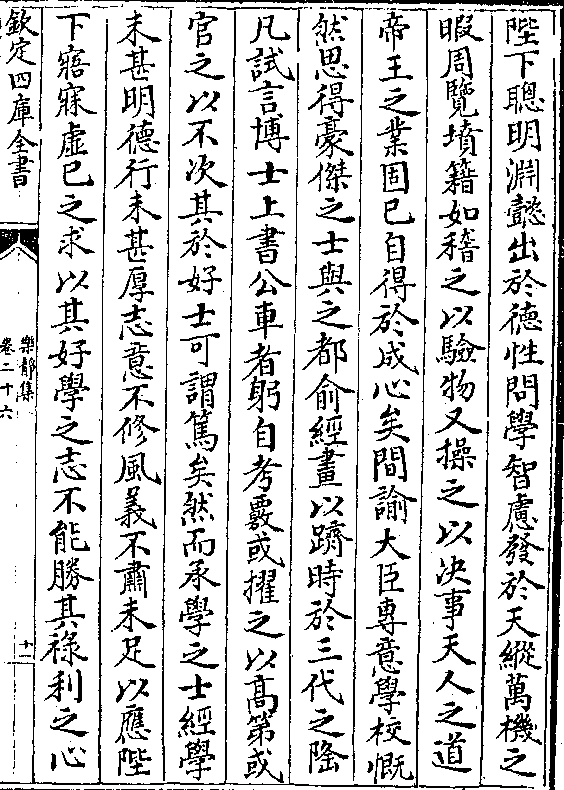 陛下聰明淵懿出於德性問學智慮發於天縱萬機之
暇周覽墳籍如稽之以驗物又操之以決事天人之道
帝王之業固已自得於成心矣間諭大臣専意學校慨
然思得豪傑之士與之都俞經畫以躋時於三代之隆
凡試言博士上書公車者躬自考覈或擢之以高第或
官之以不次其於好士可謂篤矣然而承學之士經學
未甚明德行未甚厚志意不修風義不肅未足以應陛
下寤寐虛已之求以其好學之志不能勝其祿利之心
欽定四庫全書
樂靜集
卷二十六
十一